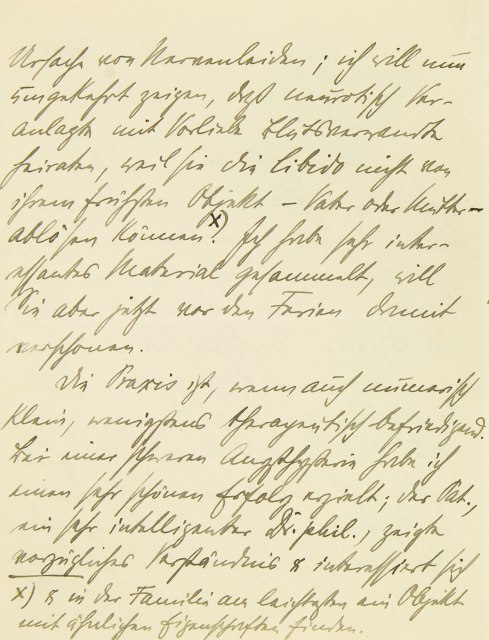 Ursache von Nervenleiden; ich will nun
umgekehrt zeigen, daß neurotisch Ver-
anlagte mit Vorliebe Blutsverwandte
heiraten, weil sie die Libido nicht von
ihrem frühsten Objekt – Vater oder Mutter –
ablösen können.x) Ich habe sehr inter-
essantes Material gesammelt, will
Sie aber jetzt vor den Ferien damit
verschonen.
Die Praxis ist, wenn auch numerisch
klein, wenigstens therapeutisch befriedigend.
Bei einer schweren Angsthysterie habe ich
einen sehr schönen Erfolg erzielt; der Pat.,
ein sehr intelligenter Dr. phil., zeigte
vorzügliches Verständnis & interessiert sich
x) & in der Familie am leichtesten ein Objekt
mit ähnlichen Eigenschaften finden.